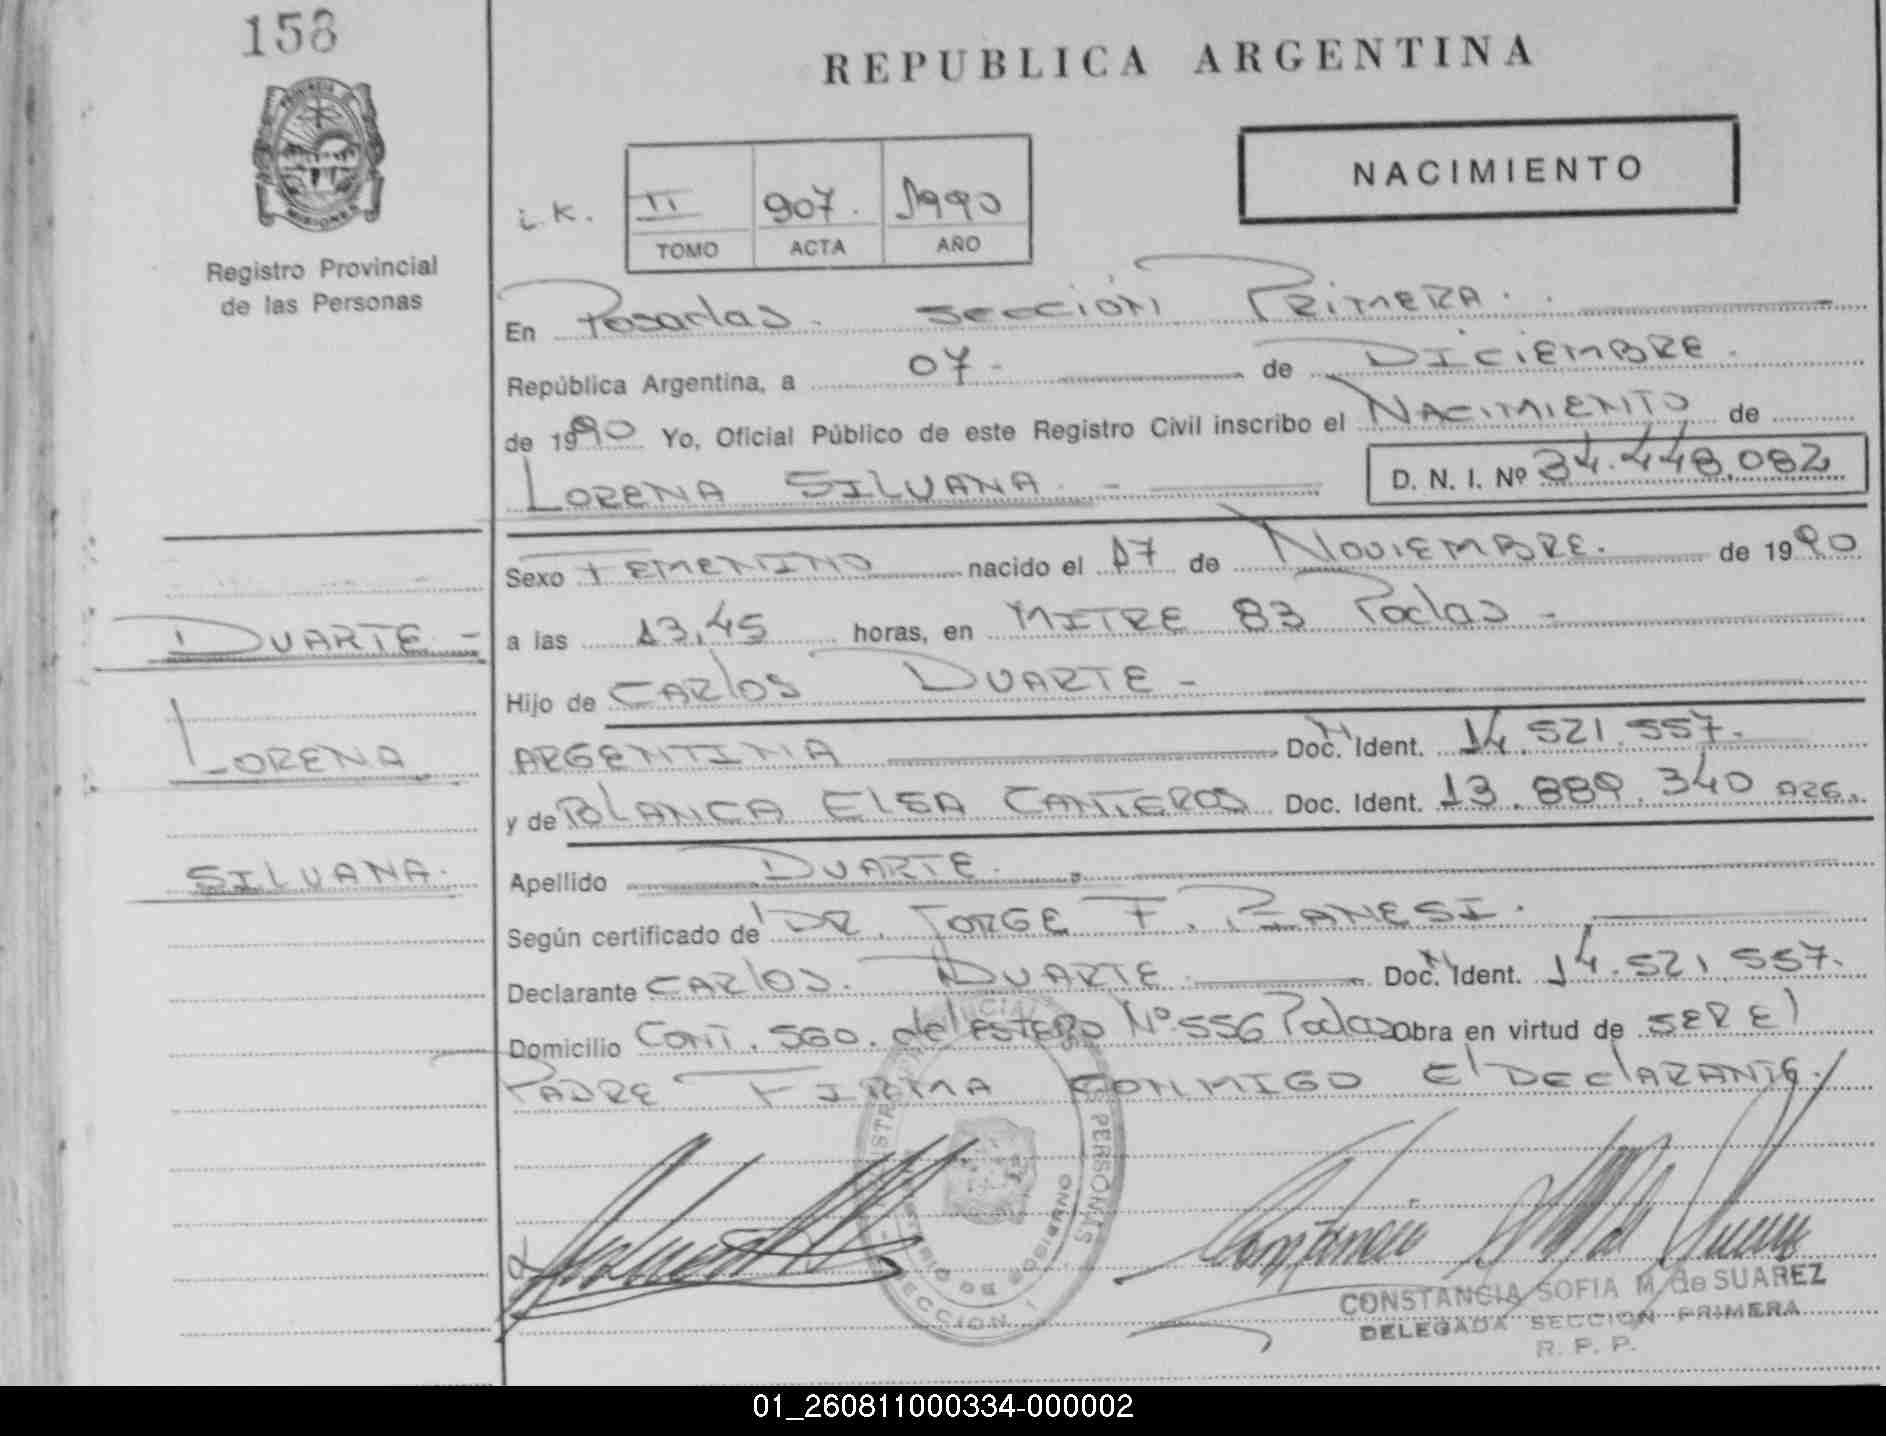 158
PROVINCIA
MISIONES
Registro Provincial
de las Personas
REPUBLICA ARGENTINA
NACIMIENTO
i.K.
II 907. 1990
TOMO ACTA AÑO
En Posadas. Sección Primera.
República Argentina, a 07- de Diciembre.
de 1990 Yo, Oficial Público de este Registro Civil inscribo el Nacimiento de
Lorena Silvana - D. N. I. Nº 34.448.082
Sexo Femenino nacido el 17 de Noviembre. de 1990
a las 13,45 horas, en Mitre 83 Pdas -
Hijo de Carlos Duarte -
Argentina Doc. Ident. 14.521.557.
y de Blanca Elsa Canteros Doc. Ident. 13.889.340 arg.
Apellido Duarte.
Según certificado de Dr. Jorge F. Pianesi.
Declarante Carlos. Duarte Doc. Ident. 14.521.557.
Domicilio Cont. SGO. del Estero Nº 556 Pdas Obra en virtud de ser el
Padre Firma conmigo el declarante.
Duarte -
Lorena
Silvana.
PERSONAS
SECCION
CONSTANCIA SOFIA M. de SUAREZ
DELEGADA SECCION PRIMERA
R. P. P.
01_260811000334-000002